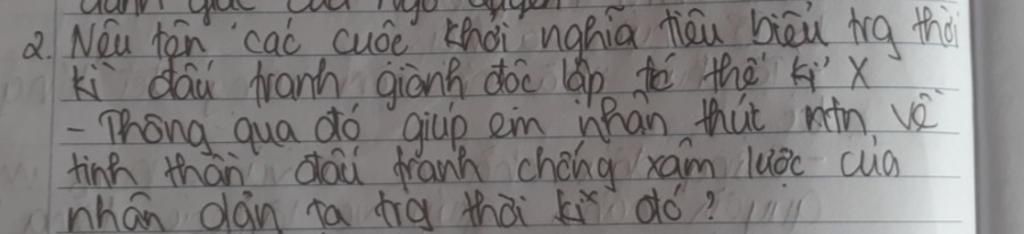 2. Nêu tên các cuộc khởi nghĩa tiêu biểu trg thời
kì đấu tranh giành độc lập thế kỉ X
- Thông qua đó giúp em nhận thức ntn về
tinh thần đấu tranh chống xâm lược của
nhân dân ta trg thời kì đó?